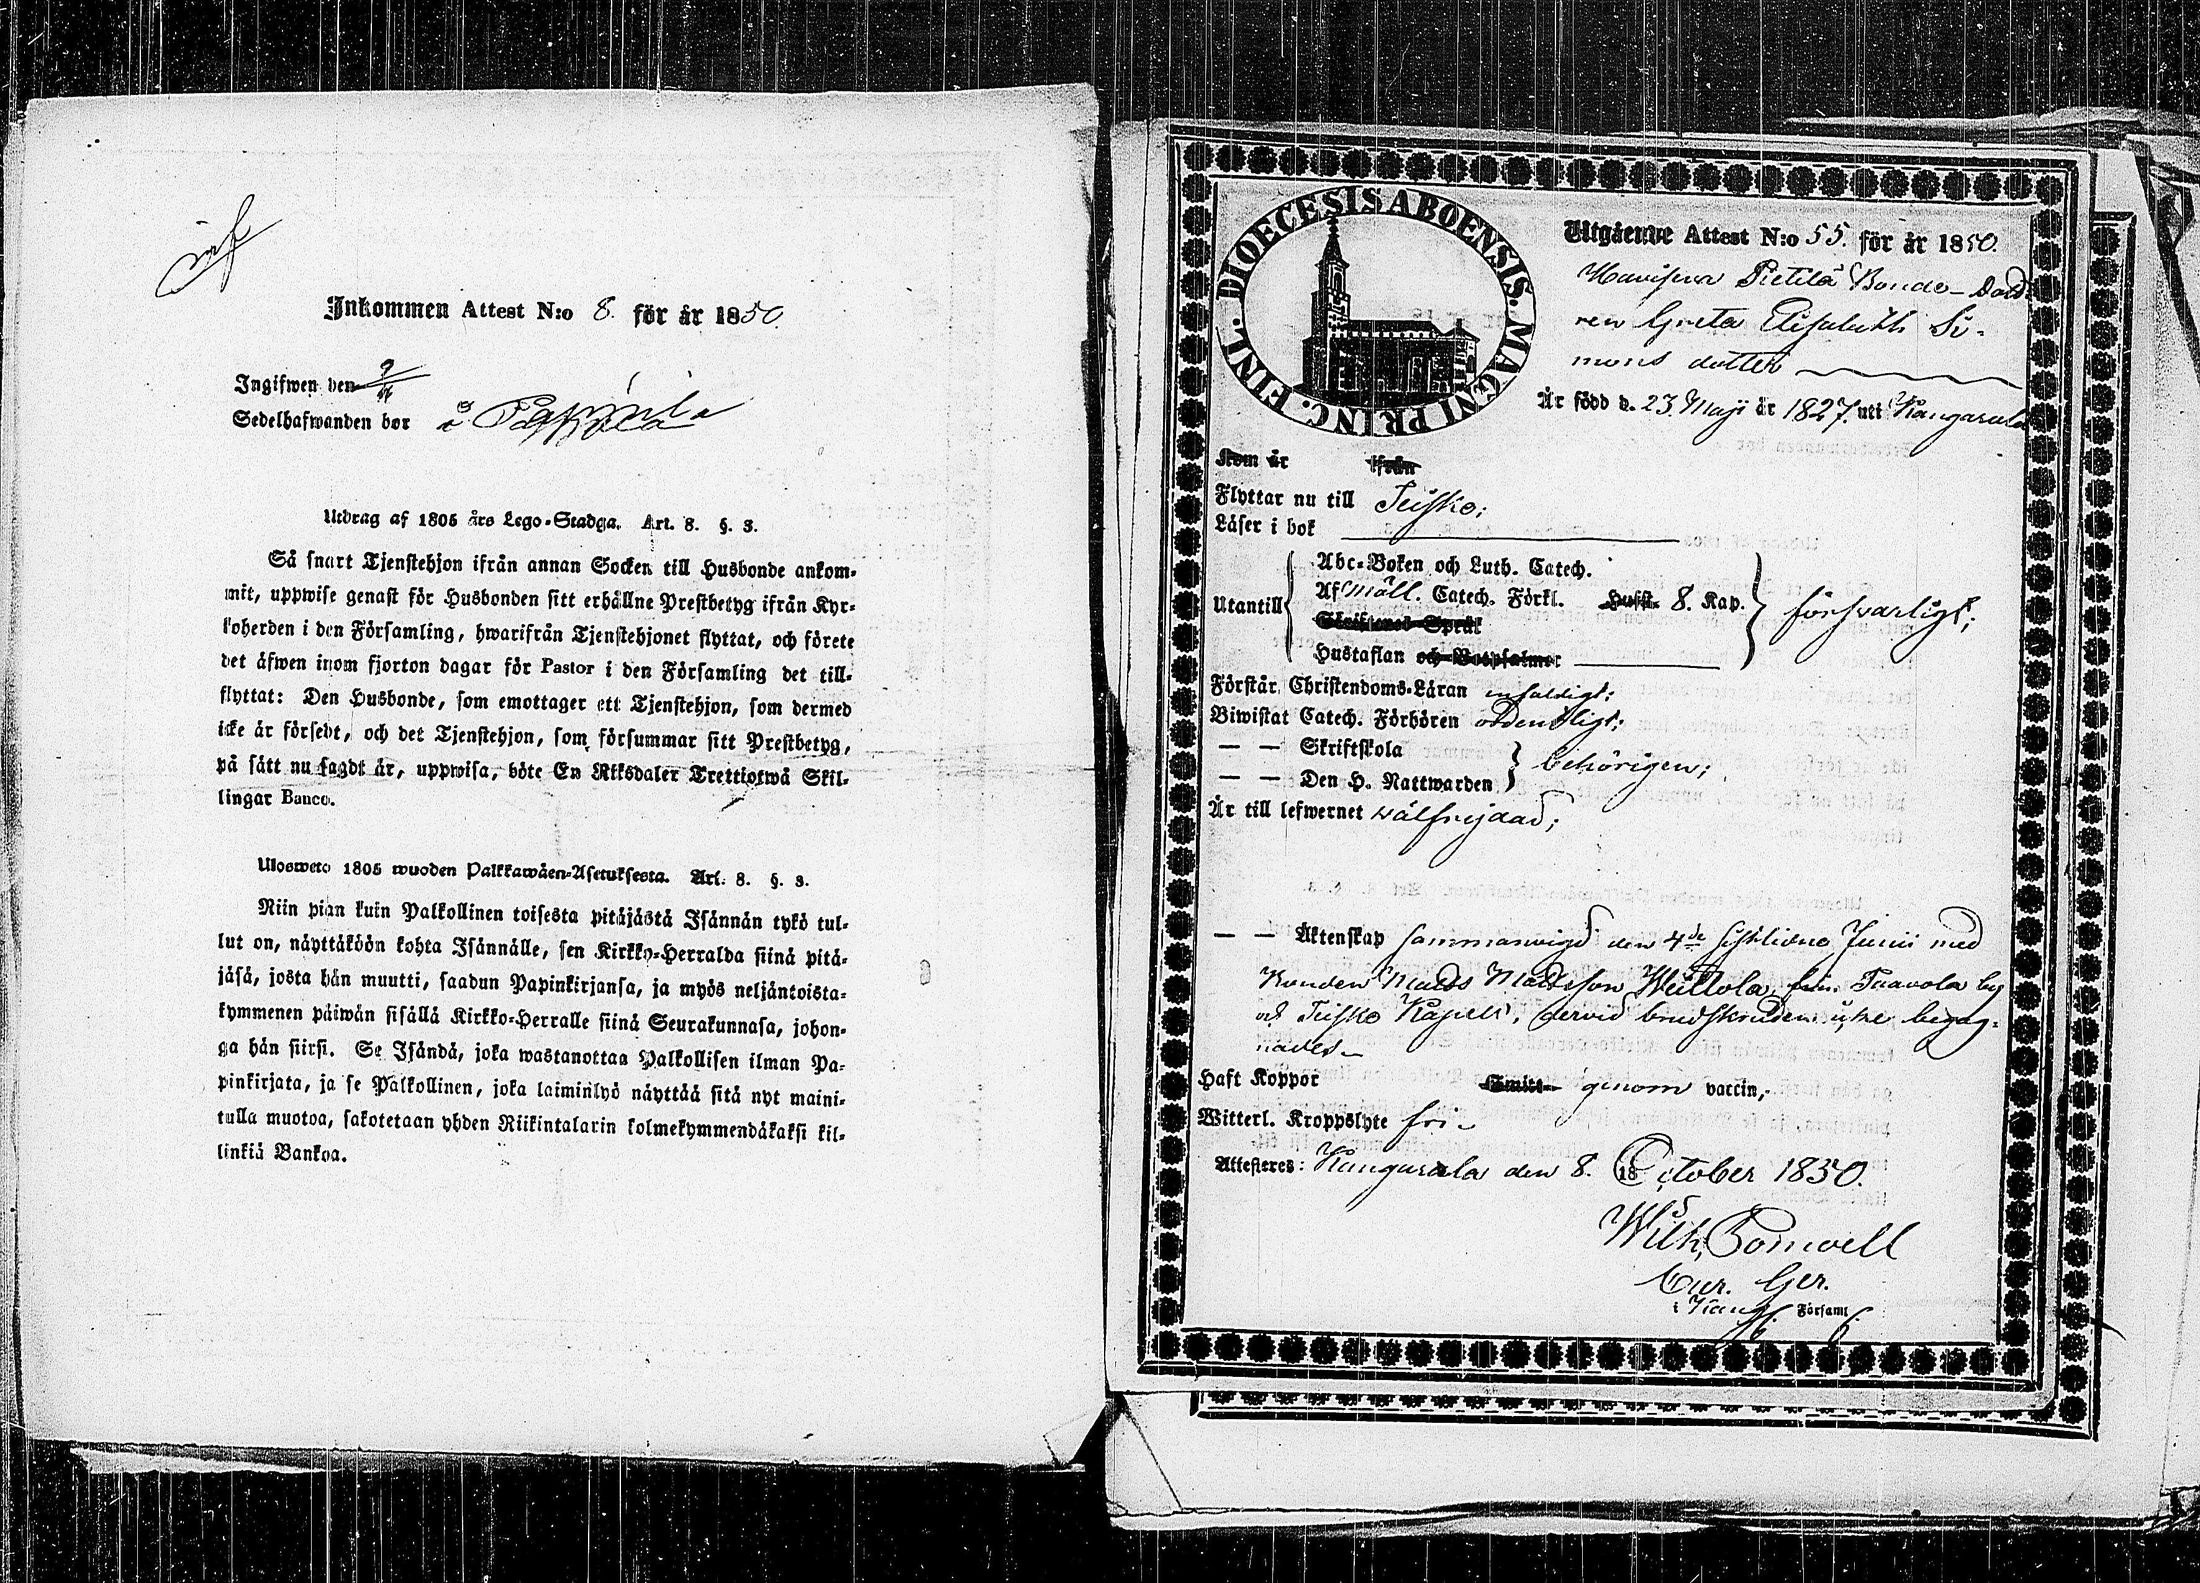 Inkommen Attest N:o 8. för år 1850.
Ingifwen den 9/11
Sedelhafwanden bor å
Utdrag af 1805 års Lego-Stadga. Art. 8. §. 3.
Så snart Tjenstehjon ifrån annan Socken till Husbonde ankom-
mit, uppwise genast för Husbonden sitt erhållne Prestbetyg ifrån Kyr-
koherden i den Församling, hwarifrån Tjenstehjonet flyttat, och förete
det äfwen inom fjorton dagar för Pastor i den Församling det till-
flyttat: Den Husbonde, som emottager ett Tjenstehjon, som dermed
icke är försedt, och det Tjenstehjon, som försummar sitt Prestbetyg,
på sätt nu sagdt är, uppwisa, böte En Riksdaler Trettiotwå Skil-
lingar Banco.
Ulosweto 1805 wuoden Palkkawäen-Asetuksesta. Art. 8. §. 3.
Niin pian kuin Palkollinen toisesta pitäjästä Isännän tykö tul-
lut on, näyttäköön kohta Isännälle, sen Kirkko-Herralda siinä pitä-
jäsä, josta hän muutti, saadun Papinkirjansa, ja myös neljäntoista-
kymmenen päiwän sisällä Kirkko-Herralle siinä Seurakunnasa, johon-
ga hän siirsi. Se Isändä, joka wastanottaa Palkollisen ilman Pa-
pinkirjata, ja se Palkollinen, joka laiminlyö näyttää sitä nyt maini-
tulla muotoa, sakotetaan yhden Riikintalarin kolmekymmendäkaksi kil-
linkiä Bankoa.
DIOECESIS ABOENSIS. MAGNI PRINC. FINL.
Utgående Attest N:o 55. för år 1850.
Pietilä Bonde-Dott
ren Greta Elisabeth Si-
mons dotter
Är född d. 23 Maji år 1827. uti Kangasala
Kom år ifrån
Flyttar nu till Teisko;
Läser i bok
Utantill
Abc-Boken och Luth. Catech.
Af Möll. Catech. Förkl. 8. Kap. försvarligt;
Skriftenes Språk
Hustaflan och Botpsalmer
Förstår Christendoms-Läran enfaldigt;
Biwistat Catech. Förhören ordentligt;
— — Skriftskola
— — Den H. Nattwarden behörigen;
Är till lefwernet välfrejdad;
— — Äktenskap sammanvigd den 4de sistlidne Junii med
Bonden Matts Mattsson från Taavola by
och Teisko Kapell, dervid brudskruden icke begag-
nades.
Haft Koppor genom vaccin,
Witterl. Kroppslyte fri
Attesteres: Kangasala den 8. October 1850.
Wilh.
Församl.